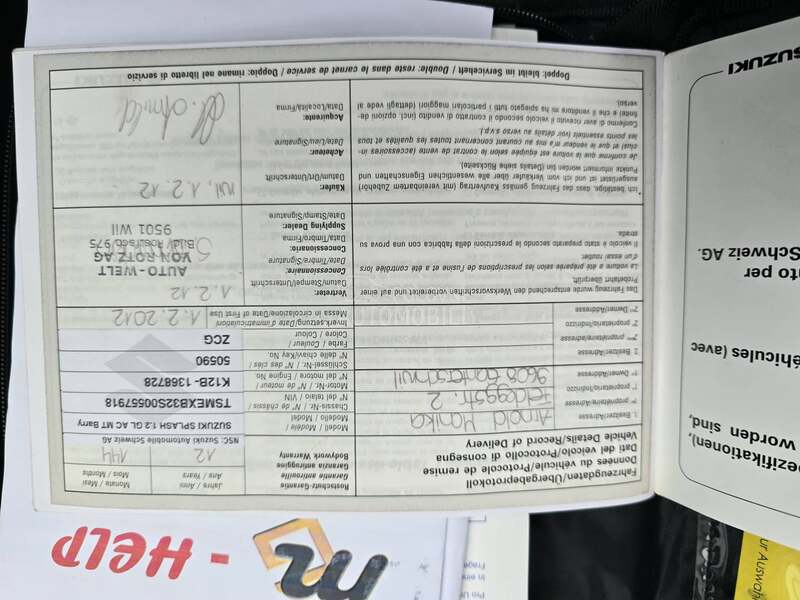 Fahrzeugdaten/Übergabeprotokoll
Données du véhicule/Protocole de remise
Dati del veicolo/Protocollo di consegna
Vehicle Details/Record of Delivery
1. Besitzer/Adresse:
1er propriétaire/adresse
1° proprietario/indirizzo
1st Owner/Address
Arnold Monika
Feldeggstr. 2
9608 Ganterschwil
2. Besitzer/Adresse:
2ème propriétaire/adresse
2° proprietario/indirizzo
2nd Owner/Address
Rostschutz-Garantie
Garantie antirouille
Garanzia antiruggine
Bodywork Warranty
Jahre / Ans
Anni / Years
12
Monate / Mesi
Mois / Months
144
NSC: Suzuki Automobile Schweiz AG
Modèle / Model
Modello / Model
SUZUKI SPLASH 1.2 GL AC MT Barry
Chassis-Nr. / N° de châssis /
N° del telaio / VIN
TSMEXB32S00557918
Motor-Nr. / N° de moteur /
N° del motore / Engine No.
K12B- 1368728
Schlüssel-Nr. / N° des clés /
N° delle chiavi/Key No.
50590
Farbe / Couleur /
Colore / Colour
ZCG
Inverk.setzung/Date d'immatriculation/
Messa in circolazione/Date of First Use
1.2.2012
Das Fahrzeug wurde entsprechend den Werksvorschriften vorbereitet und auf einer
Probefahrt überprüft.
La voiture a été préparée selon les prescriptions de l'usine et a été contrôlée lors
d'un essai routier.
Il veicolo è stato preparato secondo le prescrizioni della fabbrica con una prova su
strada.
Vertreter:
Datum/Stempel/Unterschrift
Concessionnaire:
Date/Timbre/Signature
Concessionario:
Data/Timbro/Firma
Supplying Dealer:
Date/Stamp/Signature
1.2.12
AUTO-WELT
VON ROTZ AG
9501 Wil
Ich bestätige, dass das Fahrzeug gemäss Kaufvertrag (mit vereinbartem Zubehör)
ausgerüstet ist und ich vom Verkäufer über alle wesentlichen Eigenschaften und
Punkte informiert worden bin (Details siehe Rückseite).
Je confirme que la voiture est équipée selon le contrat de vente (accessoires in-
clus) et que le vendeur m'a mis au courant concernant toutes les qualités et tous
les points essentiels (voir détails au verso s.v.p.).
Confermo di aver ricevuto il veicolo secondo il contratto di vendita (incl. opzioni de-
finite) e che il venditore mi ha spiegato tutti i particolari maggiori (dettagli vede al
verso).
Käufer:
Datum/Ort/Unterschrift
Acheteur:
Date/Lieu/Signature
Acquirente:
Data/Località/Firma
Wil, 1.2.12
Doppel: bleibt im Serviceheft / Double: reste dans le carnet de service / Doppio: rimane nel libretto di servizio
SUZUKI
Schweiz AG.
éhicules (avec
worden sind,
- HELP